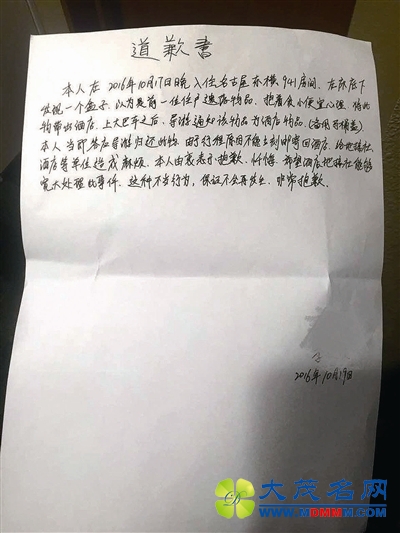 道歉書
本人在2016年10月17日晚入住名古屋东横941房间、在床底下
发现一个盒子、以为是前一位住户遗落物品、抱着贪小便宜心理、将此
物带出酒店、上大巴车之后、导游通知该物品为酒店物品(备用马桶盖)
本人当即答应导游归还此物、由于行程原因不能立刻邮寄回酒店、给地接社、
酒店等单位造成麻烦、本人由衷表示抱歉、忏悔、希望酒店地接社能够
宽大处理此事件、这种不当行为、保证不会再发生、非常抱歉、
2016年10月19日
大茂名网
www.DMMN.com